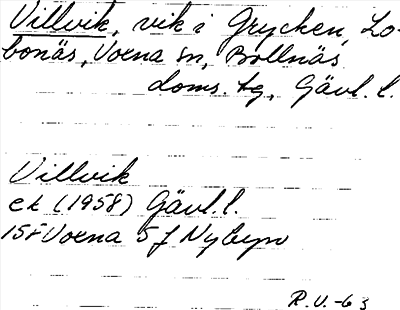 Villvik, vik i Grycken, Lo-
bonäs, Voxna sn, Bollnäs
doms. tg, Gävl. l.
Villvik
ek (1958) Gävl. l.
15F Voxna 5 f Nybyn
R.V.-63